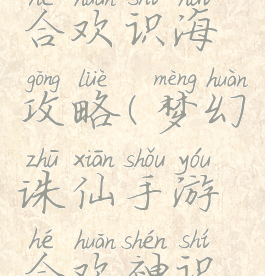 hé huān shí hǎi
合欢识海
gōng lüè mèng huàn
攻略(梦幻
zhū xiān shǒu yóu
诛仙手游
hé huān shén shí
合欢神识